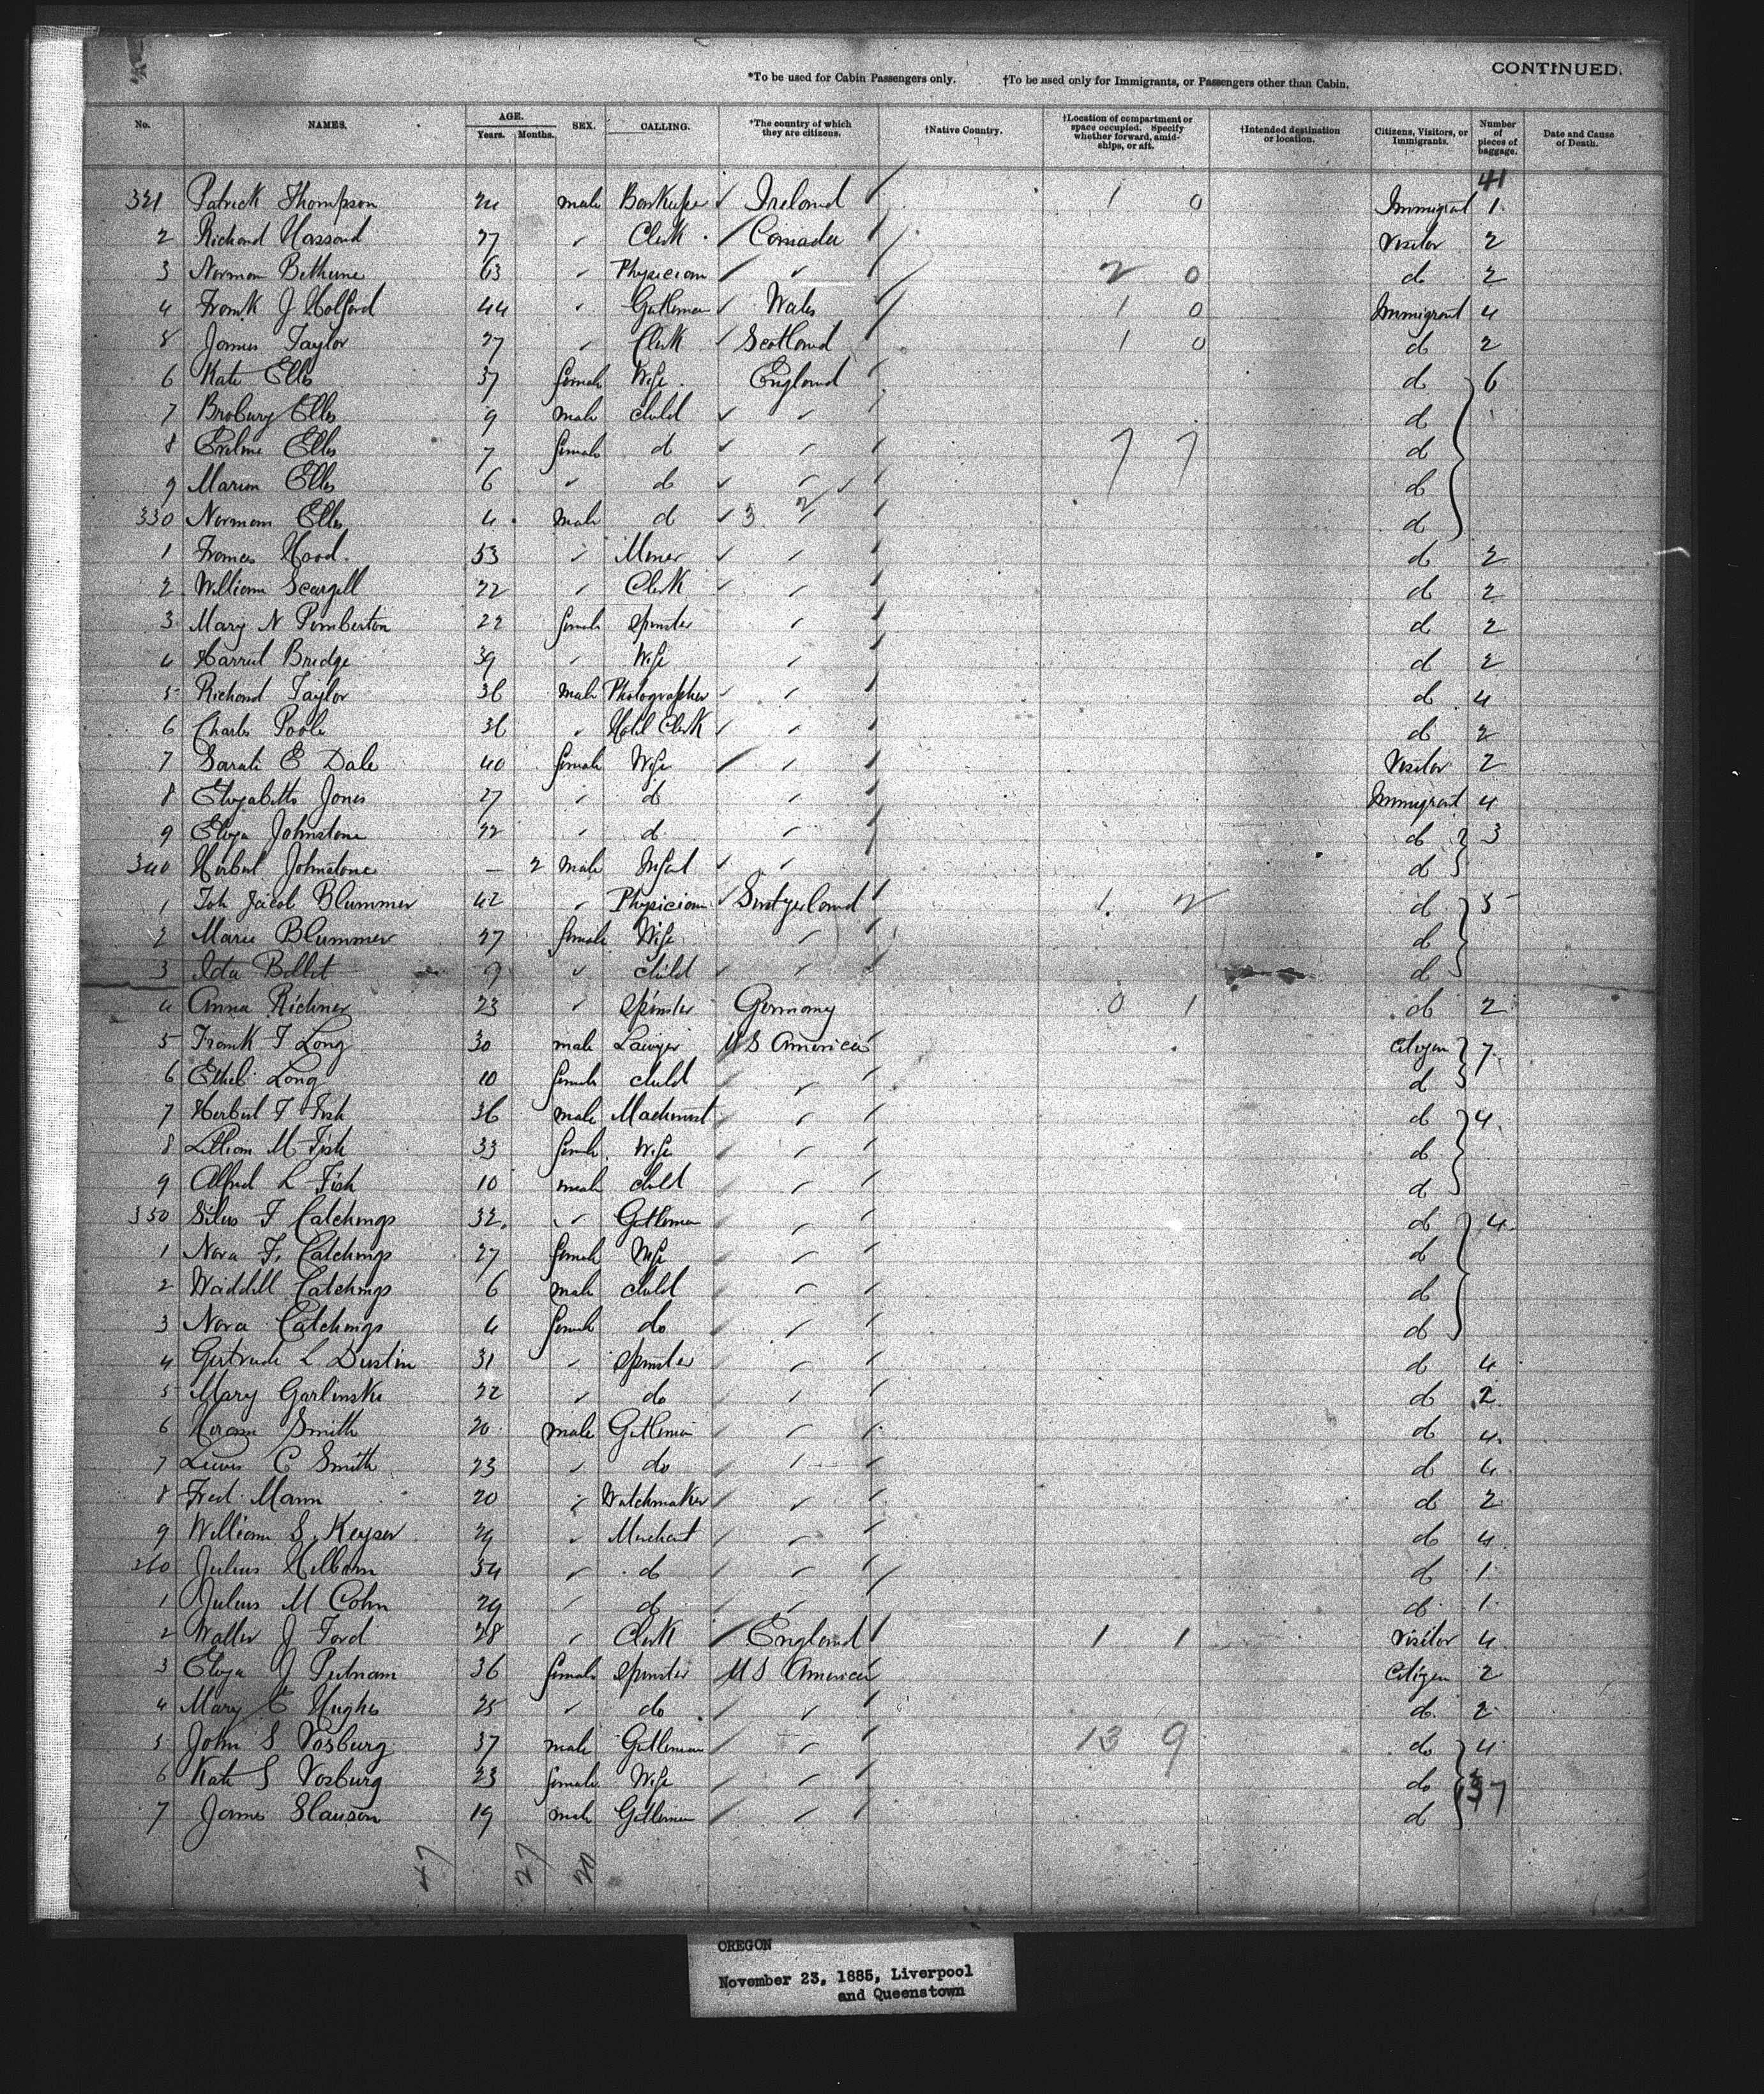 CONTINUED.
*To be used for Cabin Passengers only. †To be used only for Immigrants, or Passengers other than Cabin.
No. NAMES. AGE. Years. Months. SEX. CALLING. *The country of which they are citizens. †Native Country. †Location of compartment or space occupied. Specify whether forward, amidships, or aft. †Intended destination or location. Citizens, Visitors, or Immigrants. Number of pieces of baggage. Date and Cause of Death.
41
321 Patrick Thompson 24 male Ireland 1 0 Immigrant 1
2 Richard Hassard 27 " Clerk Canada Visitor 2
3 Norman Bethune 63 " Physician " 2 0 do 2
4 Frank J Holford 44 " Gentleman Wales 1 0 Immigrant 4
5 James Taylor 27 " Clerk Scotland 1 0 do 2
6 Kate Elles 37 female Wife England do 6
7 Brobury Elles 9 male child " do
8 Elles 7 female d " 7 7 do
9 Marion Elles 6 " d " do
330 Norman Elles 4 male d 3 2 do
1 Frances Hood 53 " Miner " do 2
2 William Scargill 22 " Clerk " do 2
3 Mary N Pemberton 22 female Spinster " do 2
4 Harriet Bridge 39 " Wife " do 2
5 Richard Taylor 36 male Photographer " do 4
6 Charles Poole 36 " Hotel Clerk " do 2
7 Sarah E Dale 40 female Wife " Visitor 2
8 Elizabeth Jones 27 " d " Immigrant 4
9 Eliza Johnstone 22 " d " do 3
340 Herbert Johnstone — 2 male Infant " do
1 Joh Jacob Blummer 42 " Physician Switzerland 1 2 do 5
2 Marie Blummer 27 female Wife " do
3 Ida Bollet 9 " child " do
4 Anna Richner 23 " Spinster Germany 0 1 do 2
5 Frank T Long 30 male Lawyer U S America Citizen 7
6 Ethel Long 10 female child " do
7 Herbert F Fish 36 male Machinist " do 4
8 Lillian M Fish 33 female Wife " do
9 Alfred L Fish 10 male child " do
350 Silas F Catchings 32 " Gentleman " do 4
1 Nora F. Catchings 27 female Wife " do
2 Waddill Catchings 6 male child " do
3 Nora Catchings 4 female do " do
4 Gertrude L Dustin 31 " Spinster " do 4
5 Mary Garlinski 22 " do " do 2
6 Hiram Smith 20 male Gentleman " do 4
7 Lewis C Smith 23 " do " do 4
8 Fred Mann 20 " Watchmaker " do 2
9 William S. Keyser 29 " Merchant " do 4
360 Julius 34 " do " do 1
1 Julius M Cohn 29 " do " do 1
2 Walter J Ford 28 " Clerk England 1 1 Visitor 4
3 Eliza J Putnam 36 female Spinster U S America Citizen 2
4 Mary E Hughes 25 " do " do 2
5 John S Vosburg 37 male Gentleman " 13 9 do 4
6 Kate S Vosburg 23 female Wife " do
7 James Slauson 19 male Gentleman " do
137
47 27 20
OREGON
November 23, 1885, Liverpool
and Queenstown